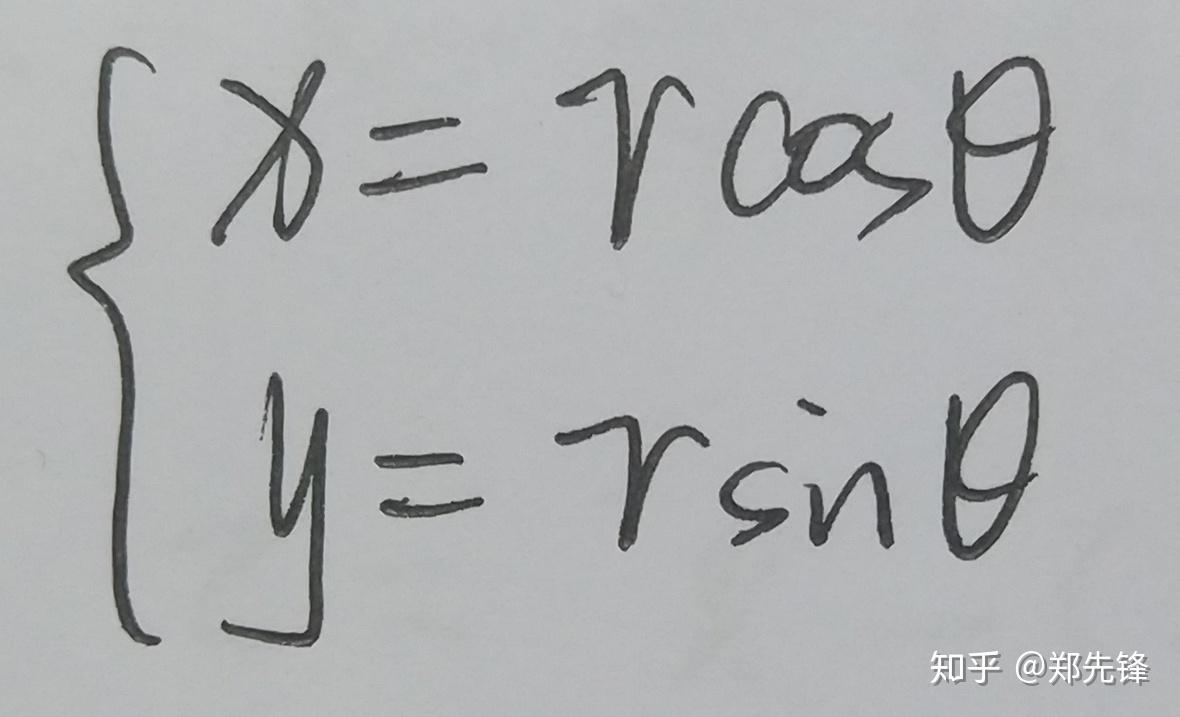 x = r cosθ
y = r sinθ
知乎 @郑先锋